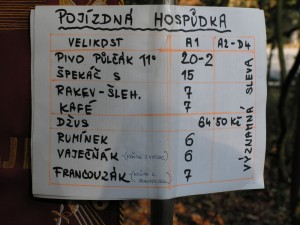 POJÍZDNÁ HOSPŮDKA
VELIKOST A1 A2-D4
PIVO PŮLČÁK 11° 20-2
ŠPEKÁČ S 15
RAKEV-ŠLEH. 7
KAFÉ 7
DŽUS 64'50 KČ
RUMÍNEK 6
VAJEČŇÁK 6
FRANCOUZÁK 7
VÝZNAMNÁ SLEVA